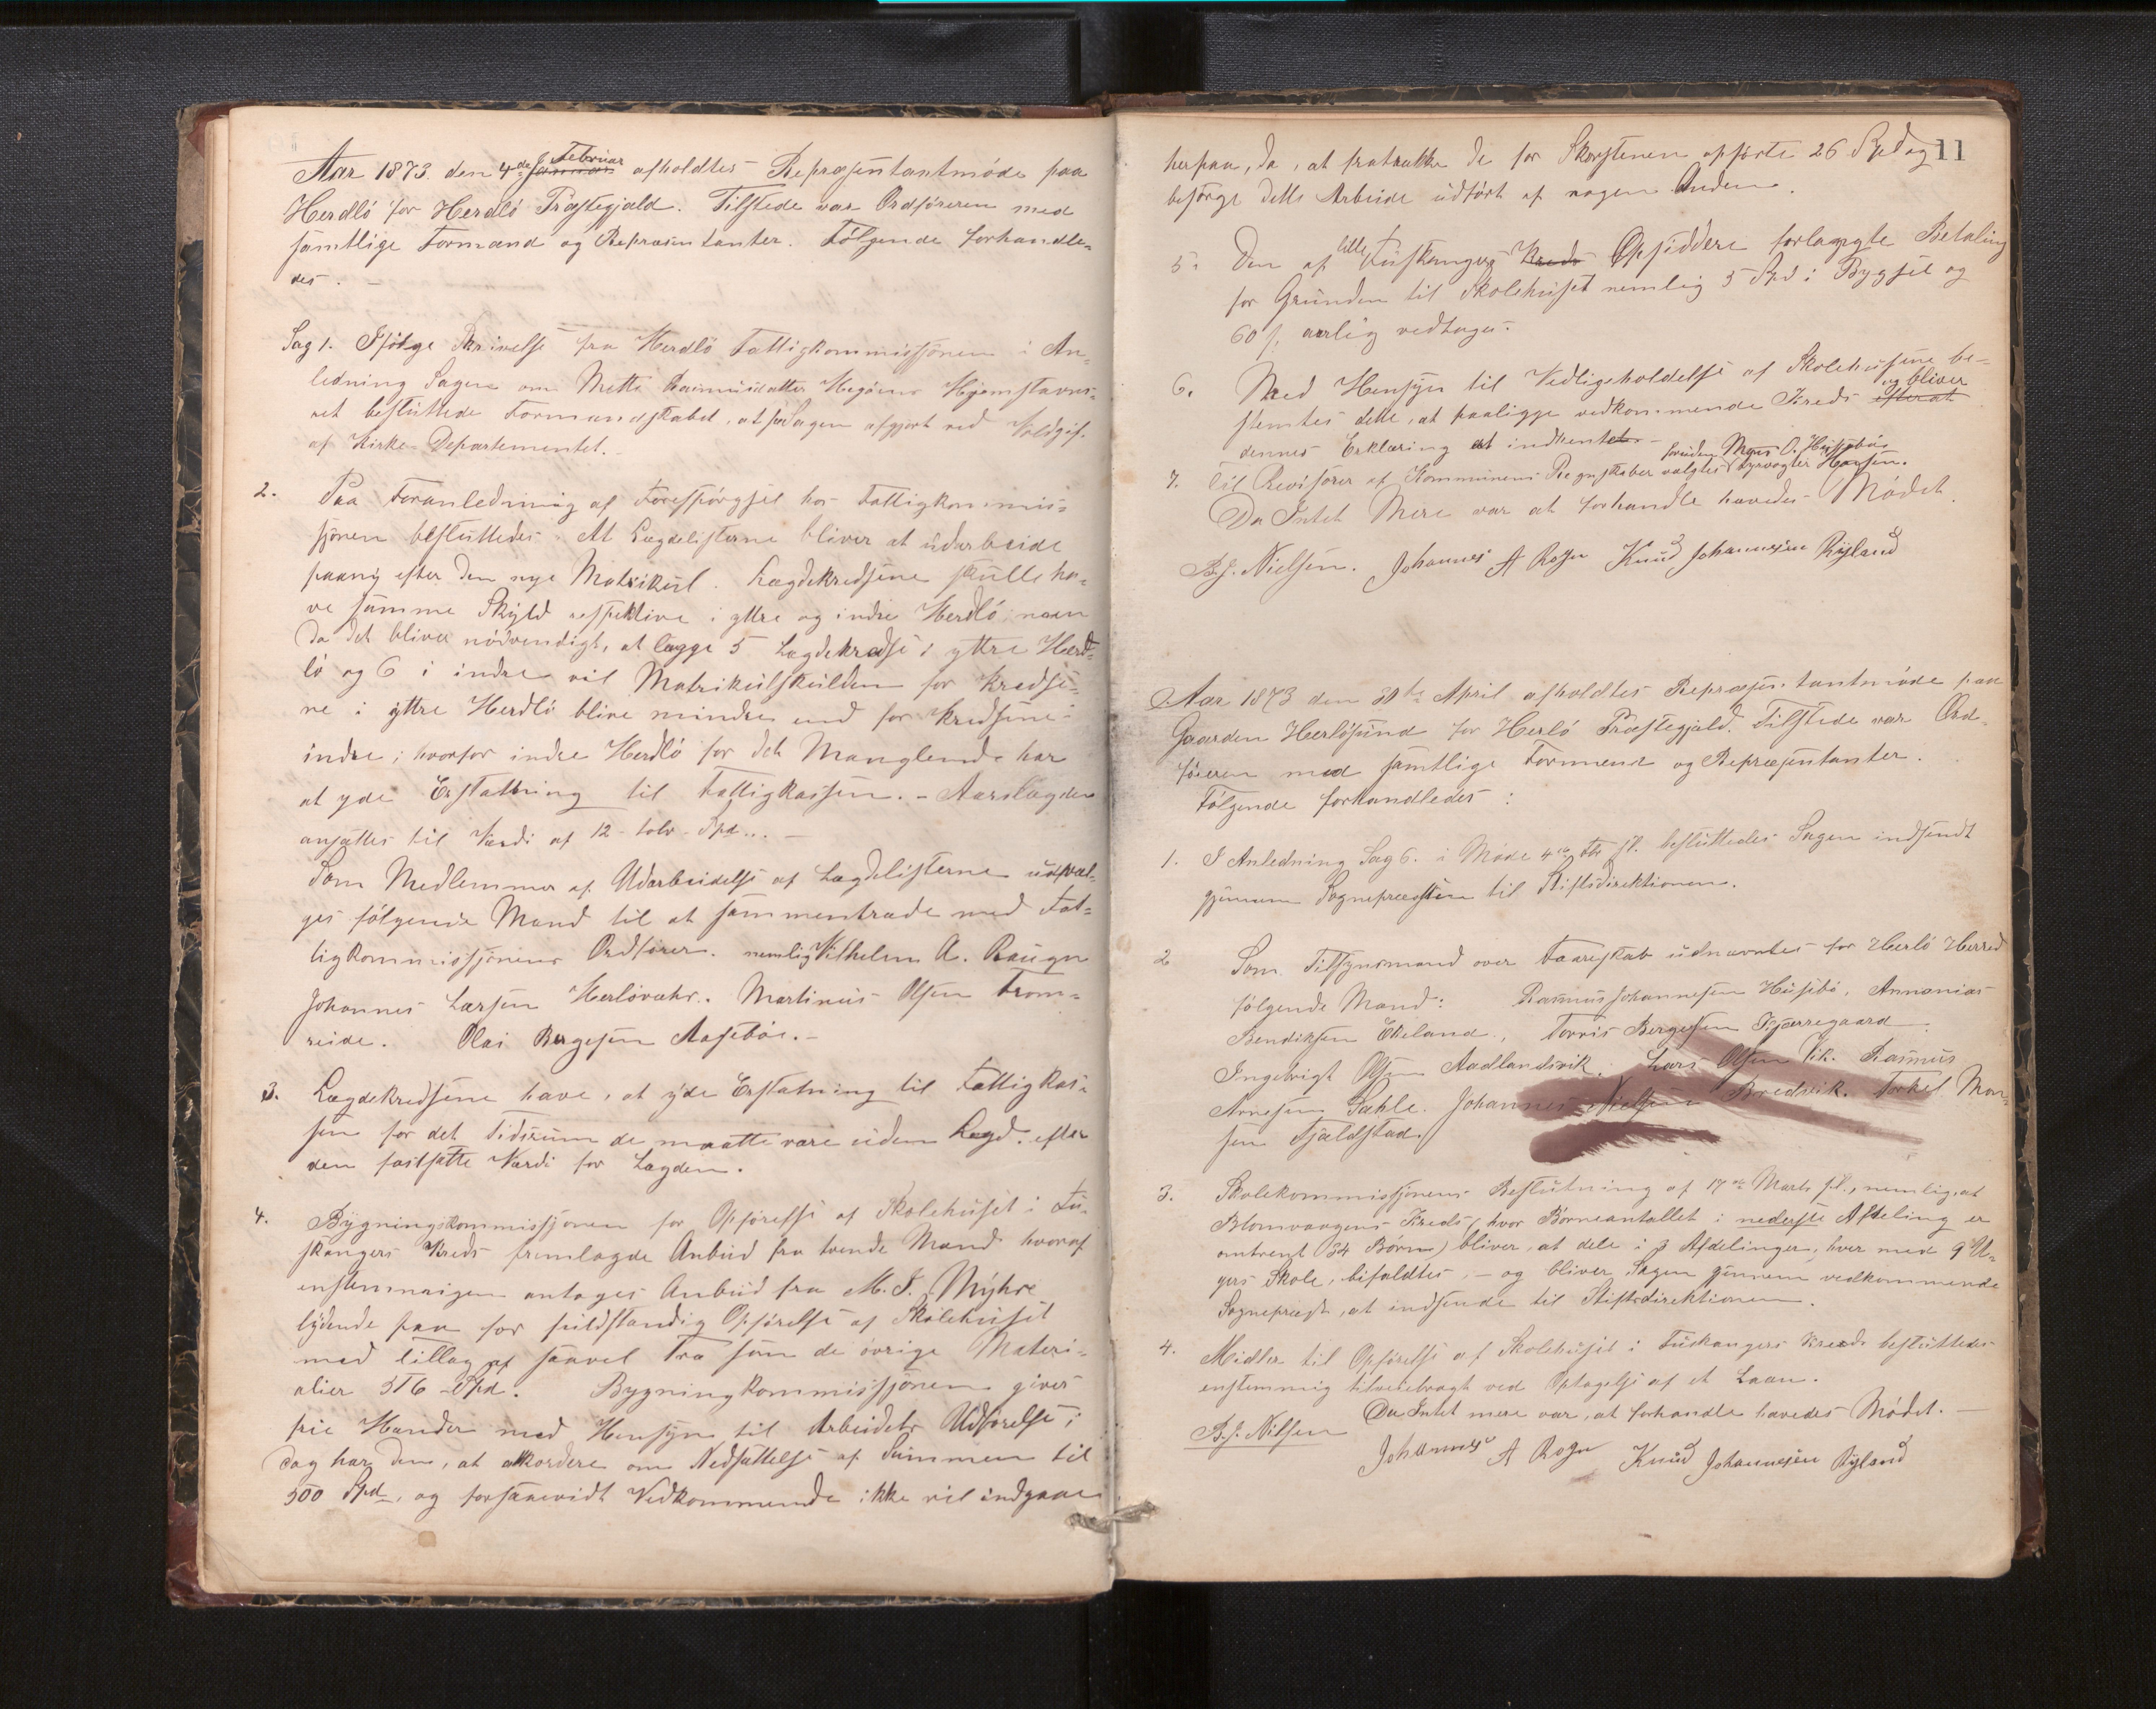 Aar 1873 den 4de Januar Februar afholdtes Repræsentantmöde paa
Herdlö for Herdlö Præstegjæld. Tilstede var Ordföreren med
samtlige Formænd og Repræsentanter. Følgende forhandle-
des. -
Sag 1. Ifölge Skrivelse fra Herdlö Fattigkommissjonen i An-
ledning Sagen om Mette Rasmusdatter Hjemstavns-
ret besluttede Formandskabet, at faa Sagen afgjort ved Voldgif.
af Kirke-Departementet.
2. Paa Foranledning af Forespörgsel hos Fattigkommis-
sjonen besluttedes. At Lægdelisterne bliver at udarbeide
paany efter den nye Matrikul. Lægdekredsene skulle ha-
ve samme Skyld respektive i yttre og indre Herdlö, men
da det bliver nödvendigt, at lægge 5 Lægdekredse i yttre Herd-
lö og 6 i indre vil Matrikulskulden for Kredse-
ne i yttre Herdlö blive mindre end for Kredsene i
indre; hvorfor indre Herdlö for det Manglende har
at yde Erstatning til Fattigkassen. - Aarslægden
ansættes til Værdi af 12 - tolv - Spd... -
Som Medlemmer af Udarbeidelse af Lægdelisterne udvæl-
ges fölgende Mænd til at sammentræde med Fat-
tigkommissjonens Ordförer. nemlig Vilhelm A. Raugn
Johannes Larsen Herlövær. Martinus Olsen From-
reide. Olai Børgesen Aasebøe. -
3. Lægdekredsene have, at yde Erstatning til Fattigkas-
sen for det Tidsrum de maatte være uden Lægd. efter
den fastsatte Værdi for Lægden.
4. Bygningskommissjonen for Opförelse af Skolehuset i Fu-
skangers Kreds fremlagde Anbud fra tvende Mænd hvoraf
enstemmigen antages Anbud fra M. J. Myhre
lydende paa for fuldstændig Opförelse af Skolehuset
med tillæg af saavel Træ som de övrige Materi-
alier 516 Spd. Bygningkommissjonen gives
frie Hænder med Hensyn til Arbeidets Udförelse;
dog har den, at akkordere om Nedsættelse af Summen til
500 Spd., og forsaavidt Vedkommende ikke vil indgaae
11
herpaa, da, at fratrække de for Skorstenen opförte 26 Spd og
besörge dette Arbeide udfört af nogen Anden.
5. Den af lille Fuskangers Kreds Opsiddere forlangte Betaling
for Grunden til Skolehuset nemlig 5 Spd i Bygsel og
60 s, aarlig vedtages.
6. Med Hensyn til Vedligeholdelse af Skolehusene be-
stemtes dette, at paaligge vedkommende Kreds efterat og bliver
dennes Erklæring at indhentet -
7. Til Revisorer af Kommunens Regnskaber valgtes foruden Mons O. Husebö Dyrvogter Hansen.
Da Intet Mere var at forhandle hævedes Mödet.
B. J. Nielsen. Johannes A Rogn Knud Johannesen Ryland
Aar 1873 den 30te April afholdtes Repræsentantmöde paa
Gaarden Herlösund for Herlö Præstegjæld. Tilstede var Ord-
föreren med samtlige Formænd og Repræsentanter.
Fölgende forhandledes:
1. I Anledning Sag 6. i Möde 4de Fbr sl. besluttedes Sagen indsendt
gjennem Sognepræsten til Stiftsdirektionen.
2 Som Tilsynsmænd over Faareskab udnævntes for Herlö Herred
fölgende Mænd: Rasmus Johannesen Husebö, Annanias
Bendiksen Ekeland, Torris Børgesen Kjærregaard.
Ingebrigt Olsen Aadlandsvik. Lars Olsen Vik. Rasmus
Arnesen Sahle. Johannes Nielsen Bredvik. Torkel Mon-
sen Fjæeldstad.
3. Skolekommissjonens Beslutning af 17de Marts sl., nemlig, at
Blomvaagens Kreds, (hvor Börneantallet i nederste Afdeling er
omtrent 54 Börn) bliver, at dele i 3 Afdelinger, hver med 9 U-
gers Skole, bifaldtes, - og bliver Sagen gjennem vedkommende
Sognepræst, at indsende til Stiftsdirektionen.
4. Midler til Opförelse af Skolehuset i Fuskangers Kreds besluttedes
enstemmig tilveiebragt ved Optagelse af et Laan.
Da Intet mere var, at forhandle hævedes Mödet. -
B. J. Nilsen Johannes A Rogn Knud Johannesen Ryland